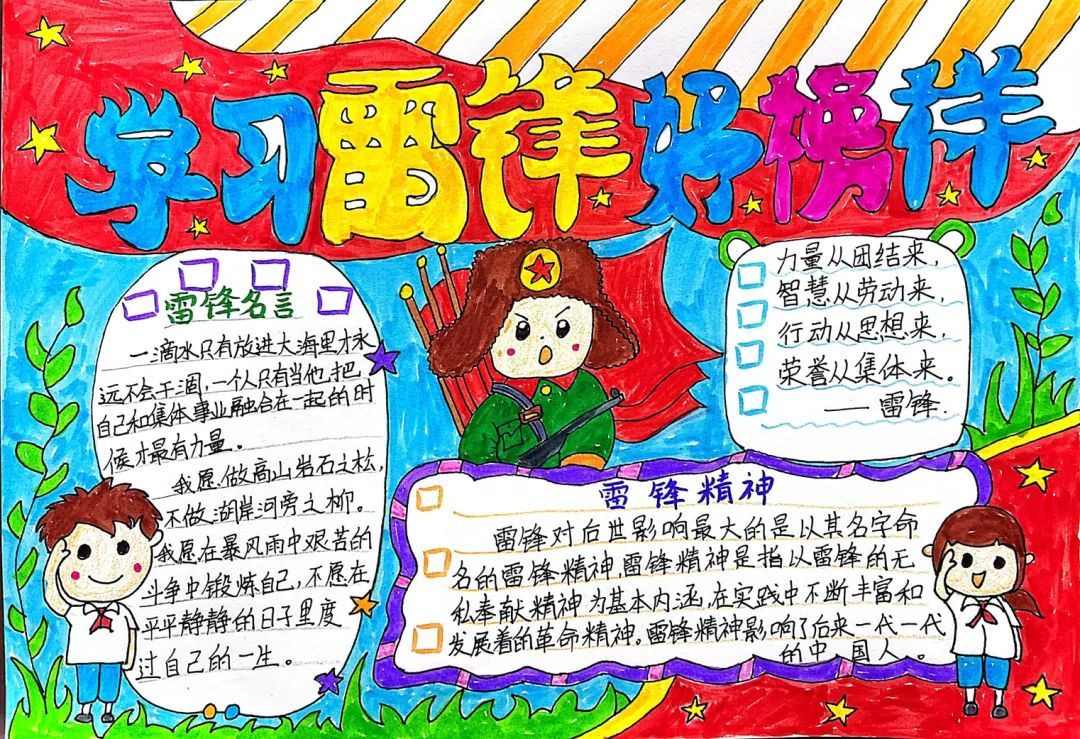 学习雷锋好榜样
雷锋名言
一滴水只有放进大海里才永
远不会干涸,一个人只有当他把
自己和集体事业融合在一起的时
候才最有力量。
我愿做高山岩石之松,
不做湖岸河旁之柳。
我愿在暴风雨中艰苦的
斗争中锻炼自己,不愿在
平平静静的日子里度
过自己的一生。
力量从团结来,
智慧从劳动来,
行动从思想来,
荣誉从集体来。
——雷锋.
雷锋精神
雷锋对后世影响最大的是以其名字命
名的雷锋精神,雷锋精神是指以雷锋的无
私奉献精神为基本内涵,在实践中不断丰富和
发展着的革命精神。雷锋精神影响了后来一代一代
的中国人。